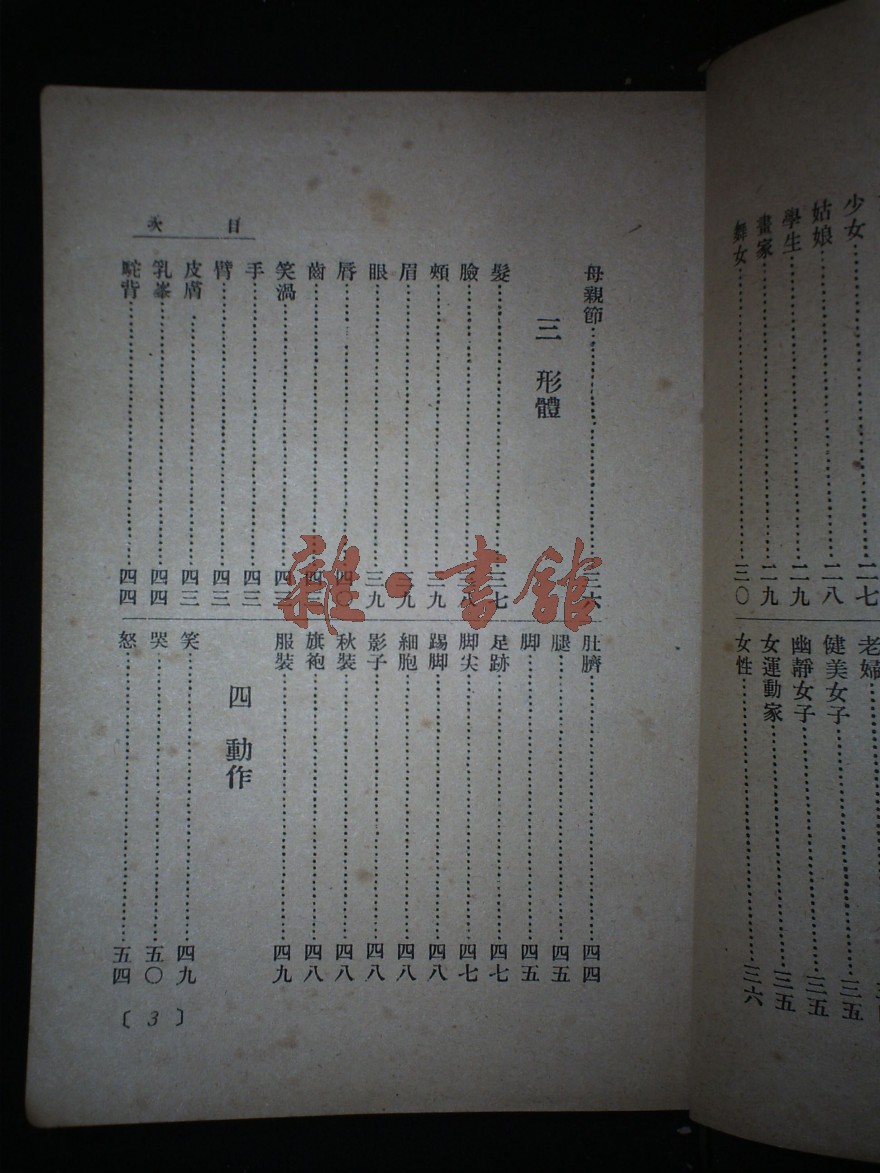 少女……二七
姑娘……二八
學生……二九
畫家……二九
舞女……三〇
老婦……
健美女子……三五
幽靜女子……三五
女運動家……三五
女性……三六
目次
母親節……三六
三 形體
髮……三七
臉……三八
頰……三九
眉……三九
眼……三九
唇……四〇
齒……四
笑渦……四
手……四三
臂……四三
皮膚……四三
乳峯……四四
駝背……四四
肚臍……四四
腿……四五
脚……四五
足跡……四七
脚尖……四七
踢脚……四八
細胞……四八
影子……四八
秋裝……四八
旗袍……四八
服裝……四九
四 動作
笑……四九
哭……五〇
怒……五四
〔3〕
雜·書館